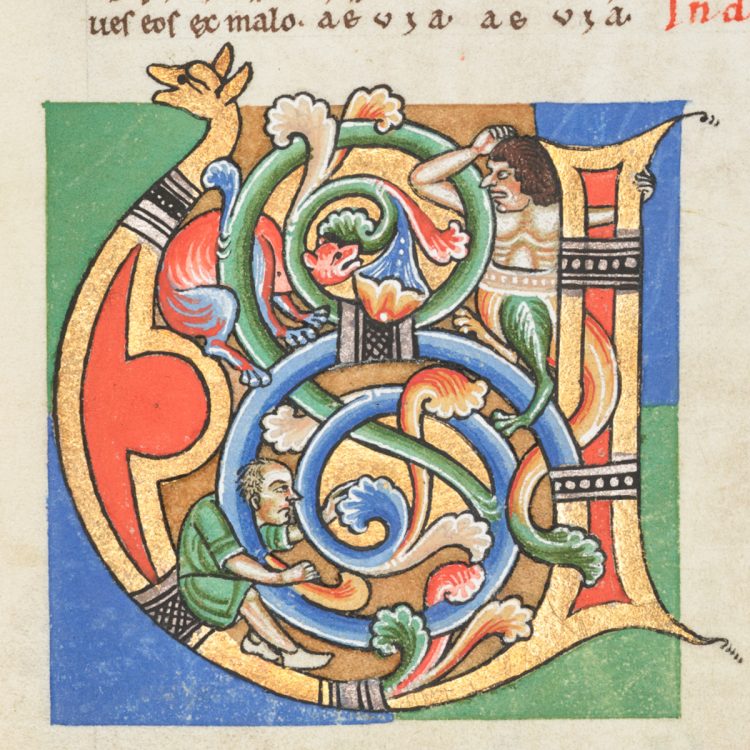 ueſ eoſ ex malo. a e v i a. a e v i a. In d